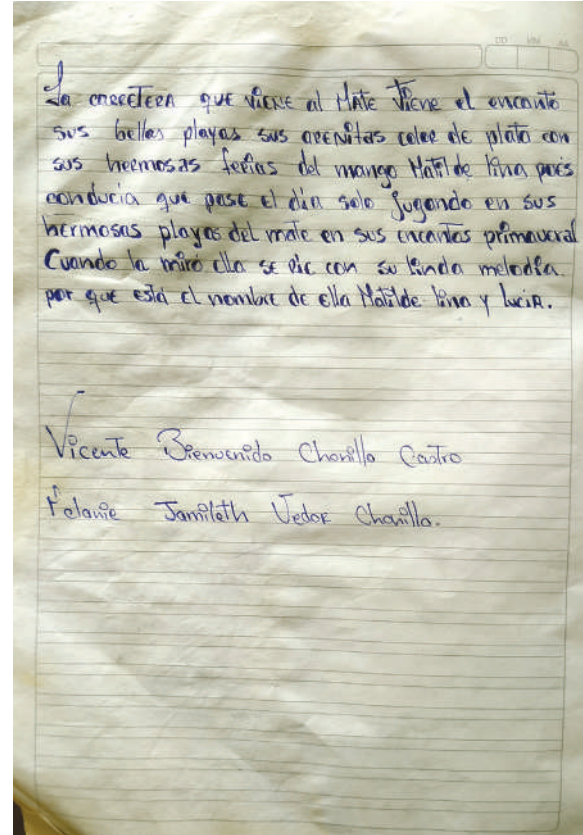 DD MM AA
La carretera que viene al Mate Viene el encanto
sus bellas playas sus arenitas color de plata con
sus hermosas ferias del mango Matilde lina pues
conducia que pase el día solo jugando en sus
hermosas playas del mate en sus encantos primaveral
Cuando la miró ella se ric con su linda melodía.
por que está el nombre de ella Matilde lina y lucia.
Vicente Bienvenido Chonillo Castro
Jamileth Chonillo.